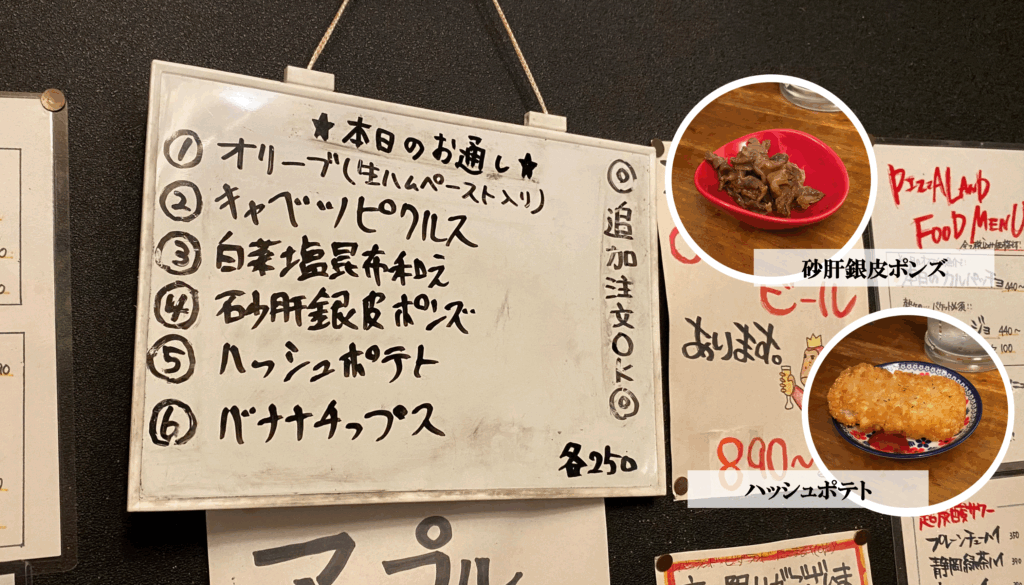 ★本日のお通し★
① オリーブ(生ハムペースト入り)
② キャベツピクルス
③ 白菜塩昆布和え
④ 砂肝銀皮ポンズ
⑤ ハッシュポテト
⑥ バナナチップス
各250
◎追加注文OK◎
アプル
ビール
あります。
890~
砂肝銀皮ポンズ
ハッシュポテト
PIZZALAND
FOOD MENU
440~
100
超炭酸サワー
プレーンチューハイ 350
静岡緑茶ハイ